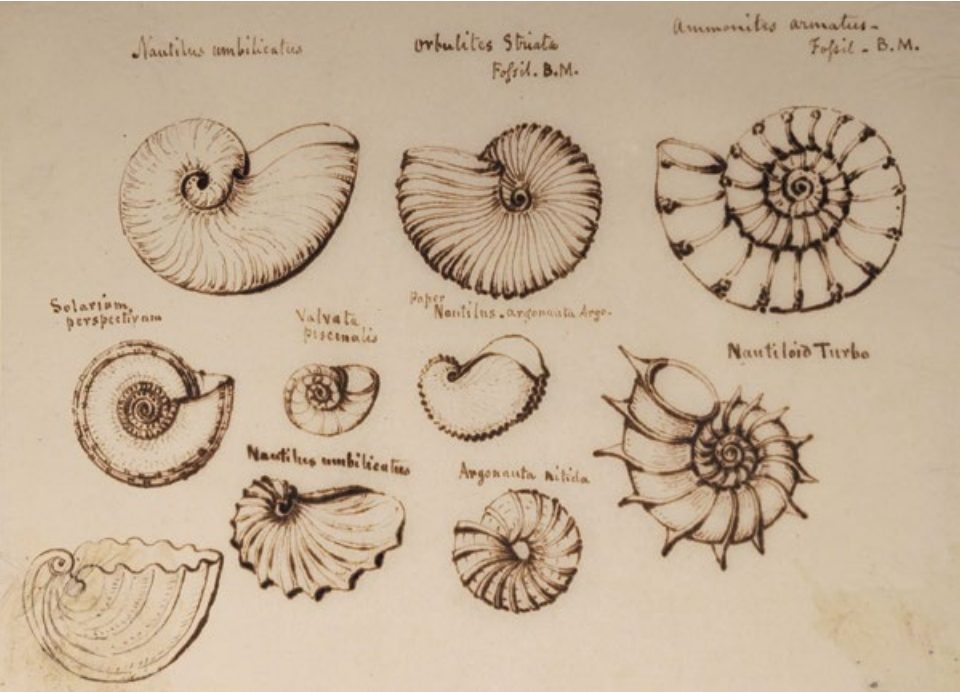 Nautilus umbilicatus
Orbulites Striata
Fossil. B.M.
Ammonites armatus -
Fossil - B.M.
Solarium
perspectivam
Valvata
piscinalis
Paper
Nautilus. argonauta Argo.
Nautiloid Turbo
Nautilus umbilicatus
Argonauta nitida